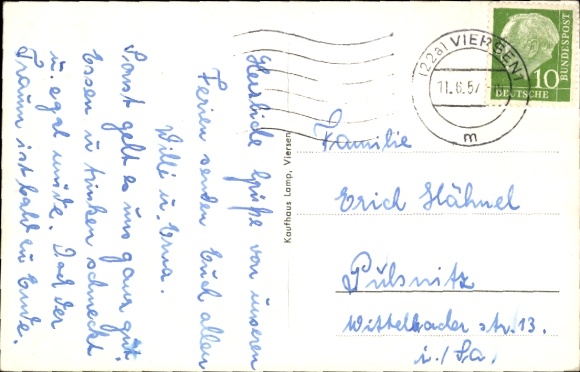 Herzliche Grüße von unseren
Ferien senden Euch allen
Willi u. Erna.
Sonst geht es uns ganz gut.
Essen u. trinken schmeckt
u. egal müde. Doch der
Traum ist bald zu Ende.
Kaufhaus Lamp, Viersen
(22a) VIERSEN
11.6.57
m
10
DEUTSCHE BUNDESPOST
Familie
Erich Hähnel
Pulsnitz
Wittelbacher str. 13.
i./Sa.